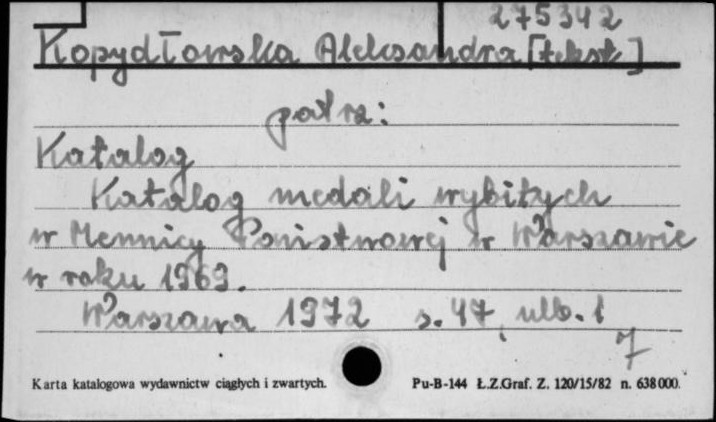 275342
Kopydłowska Aleksandra [tekst]
patrz:
Katalog
Katalog medali wybitych
w Mennicy Państwowej w Warszawie
w roku 1969.
Warszawa 1972 s. 47, ulb. 1
7
Karta katalogowa wydawnictw ciągłych i zwartych. Pu-B-144 Ł.Z.Graf. Z. 120/15/82 n. 638000.